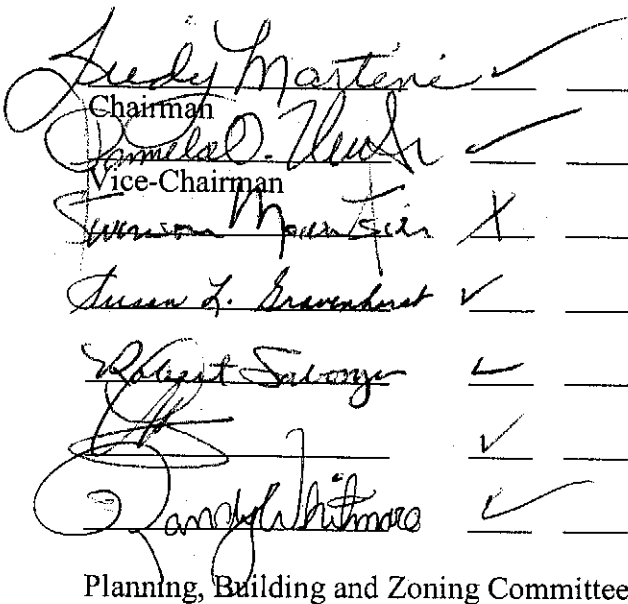 Judy Martini ✓
Chairman
Pamela O. ✓
Vice-Chairman
X
Susan L. Gravenhorst ✓
Robert ✓
✓
Randy Whitmore ✓
Planning, Building and Zoning Committee